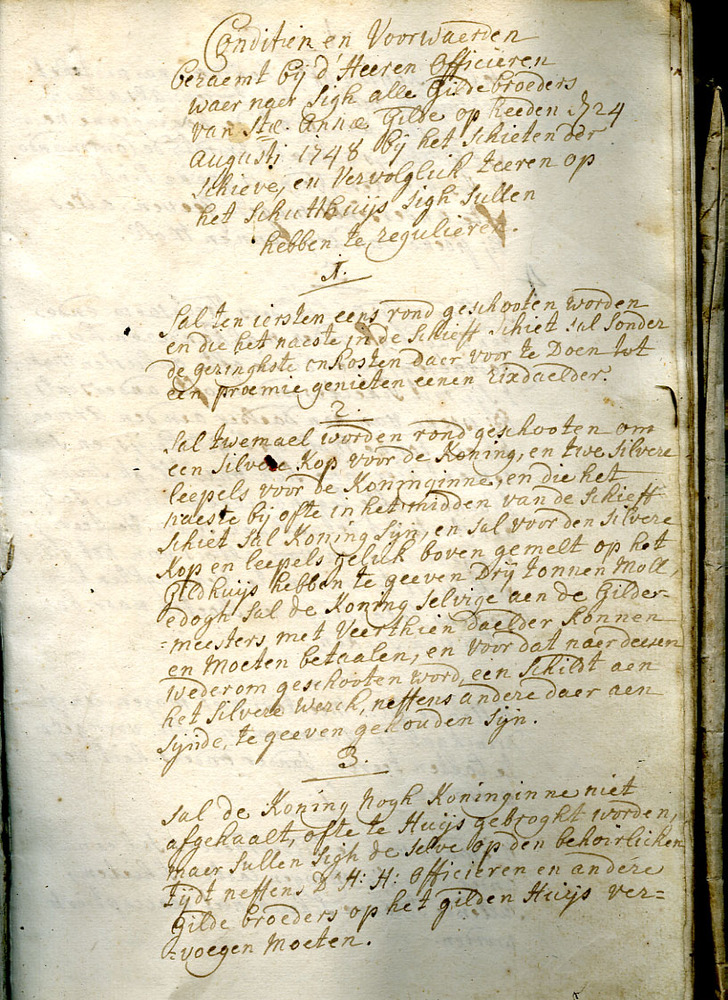 Conditiën en Voorwaerden
beraemt bij d'Heeren Officieren
waer naer sigh alle Gildebroeders
van Stæ. Annæ Gilde op heeden d 24
Augusti 1748 bij het schieten der
Schieve, en vervolglijk teeren op
het Schutthuijs sigh sullen
hebben te reguliren.
1.
Sal ten iersten eens rond geschooten worden
en die het naeste in de Schieff schiet sal sonder
de geringhste onkosten daer voor te doen tot
een prœmie genieten eenen Rixdaelder.
2.
Sal twemael worden rond geschooten om
een silvere Kop voor de Koning, en twe silvere
leepels voor de Koninginne, en die het
naeste bij ofte in het midden van de Schieff
schiet sal Koning sijn, en sal voor den silvere
Kop en leepels gelijk boven gemelt op het
Gildhuijs hebben te geeven drij tonnen Moll,
edogh sal de Koning selvige aen de Gilde=
=meesters met Veerthien daelder konnen
en moeten betaalen, en voor dat naer deesen
wederom geschooten word, een Schildt aen
het silvere werck, neffens andere daer aen
sijnde, te geeven gehouden sijn.
3.
Sal de Koning nogh Koninginne niet
afgehaalt, ofte te Huijs gebroght worden,
maer sullen sigh de selve op den behoirlicken
tijdt neffens D' H: H: Officieren en andere
Gilde broeders op het gilden Huijs ver=
=voegen moeten.